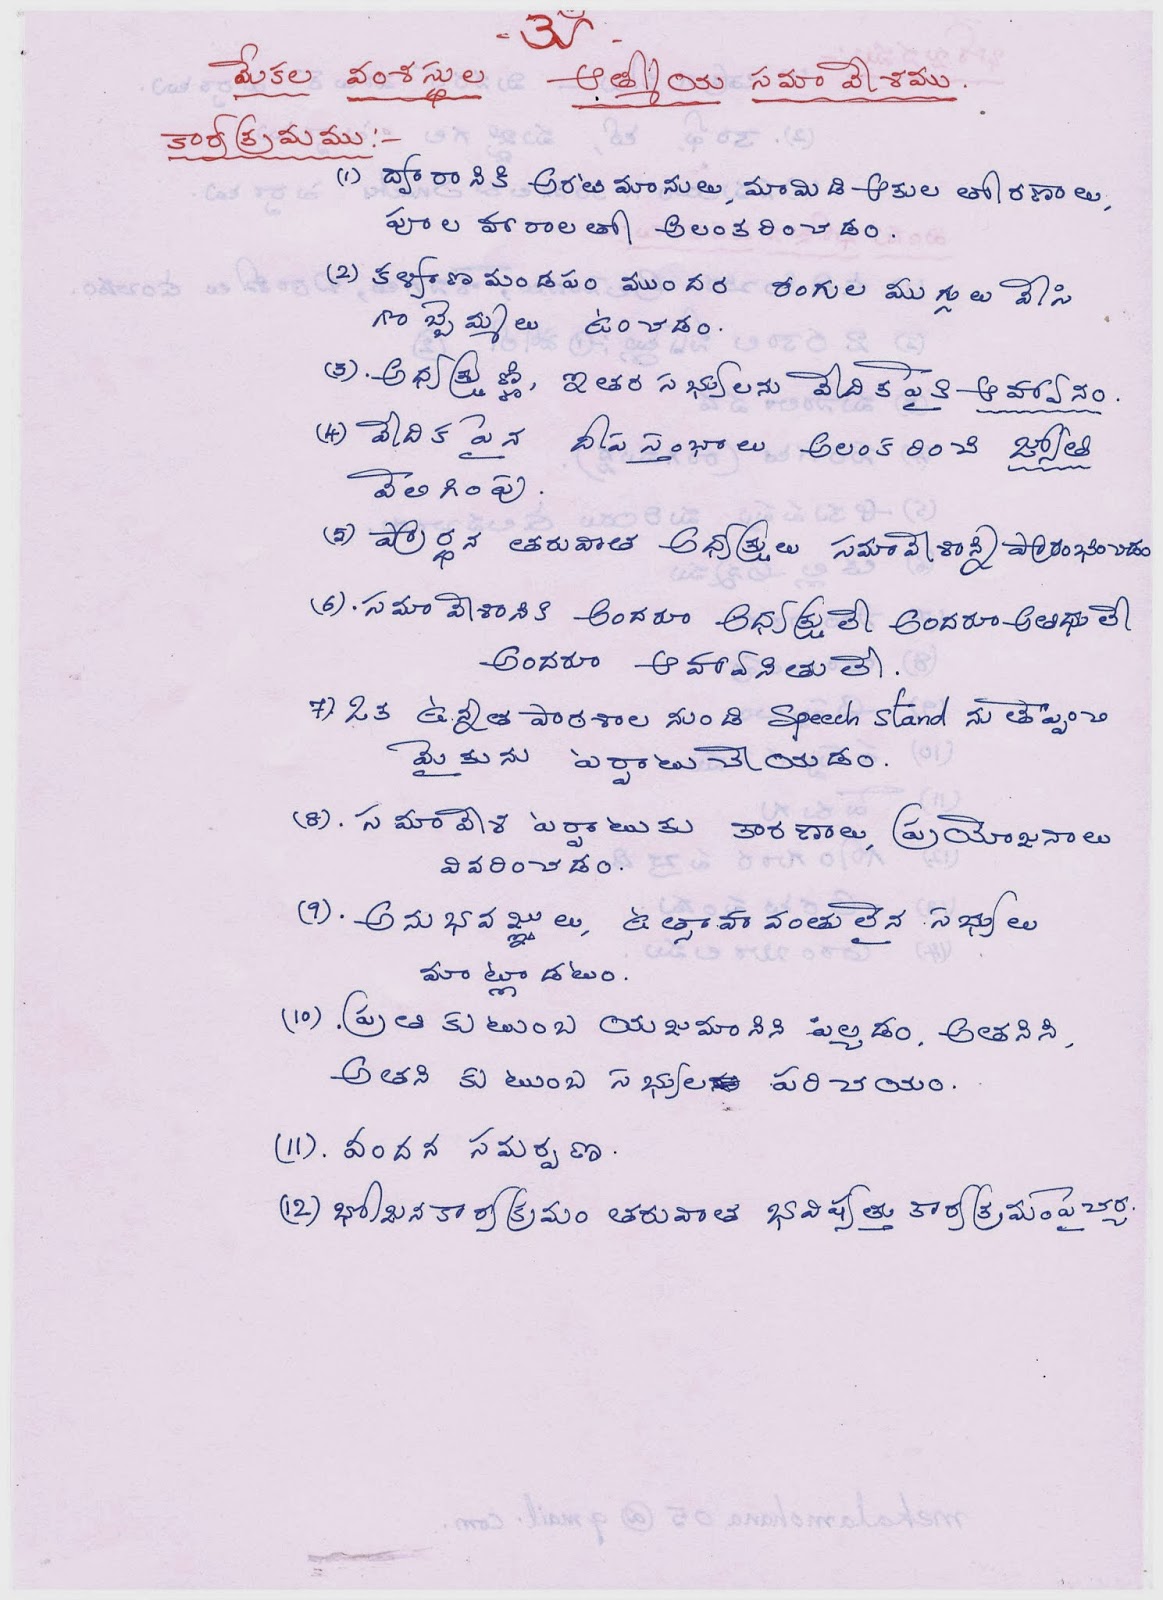 -ఓం-
మేకల వంశస్థుల ఆత్మీయ సమావేశము.
కార్యక్రమము:-
(1) ద్వారానికి అరటిమానులు, మామిడి ఆకుల తోరణాలు,
పూల హారాలతో అలంకరించడం.
(2) కళ్యాణమండపం ముందర రంగుల ముగ్గులు వేసి
గొబ్బెమ్మలు ఉంచడం.
(3). అధ్యక్షుణ్ణి, ఇతర సభ్యులను వేదికపైకి ఆహ్వానం.
(4) వేదికపైన దీపస్తంభాలు అలంకరించి జ్యోతి
వెలిగింపు.
(5) ప్రార్థన తరువాత అధ్యక్షులు సమావేశాన్ని ప్రారంభించడం
(6). సమావేశానికి అందరూ అధ్యక్షులే అందరూ అతిథులే
అందరూ ఆహ్వానితులే.
7) ఒక ఉన్నత పాఠశాల నుండి Speech Stand ను తెప్పించి
మైకును ఏర్పాటుచేయడం.
(8). సమావేశ ఏర్పాటుకు కారణాలు, ప్రయోజనాలు
వివరించడం.
(9). అనుభవజ్ఞులు, ఉత్సాహవంతులైన సభ్యులు
మాట్లాడటం.
(10). ప్రతి కుటుంబ యజమానిని పిల్వడం, అతనిని,
అతని కుటుంబ సభ్యుల పరిచయం.
(11). వందన సమర్పణ.
(12) భోజనకార్యక్రమం తరువాత భవిష్యత్తు కార్యక్రమంపై చర్చ.
mekalamohana05@gmail.com.